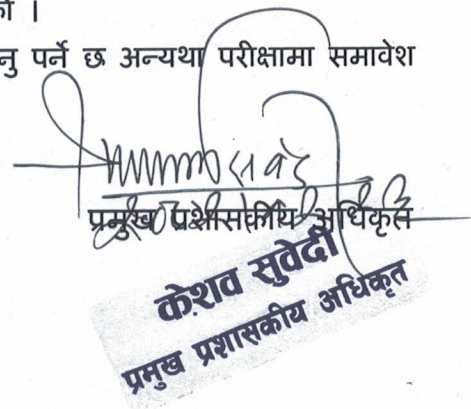 ।
पर्ने छ अन्यथा परीक्षामा समावेश
प्रमुख प्रशासकीय अधिकृत
केशव सुवेदी
प्रमुख प्रशासकीय अधिकृत